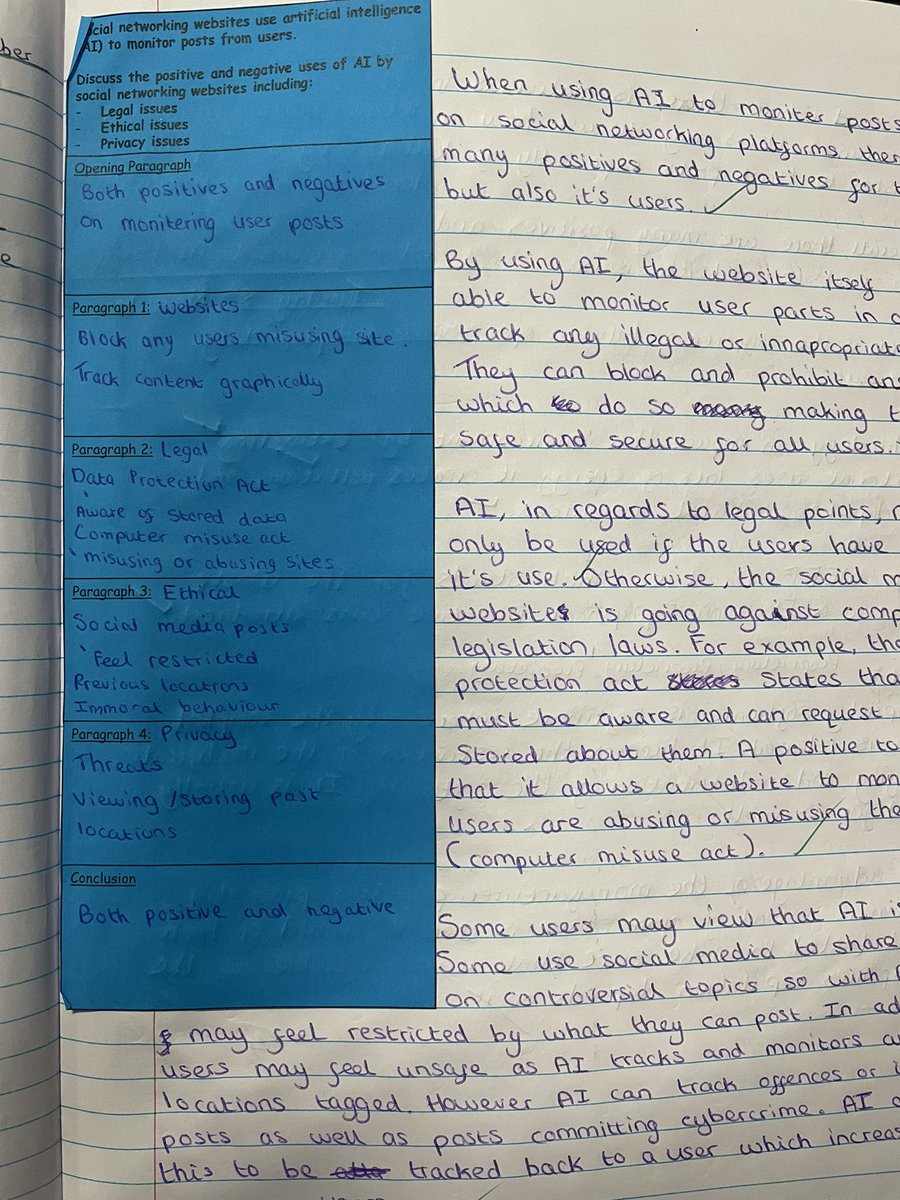 ber
e
cial networking websites use artificial intelligence
AI) to monitor posts from users.
Discuss the positive and negative uses of AI by
social networking websites including:
- Legal issues
- Ethical issues
- Privacy issues
Opening Paragraph
Both positives and negatives
on monitering user posts
Paragraph 1: Websites
Block any users misusing site.
Track content graphically
Paragraph 2: Legal
Data Protection Act
Aware of Stored data
Computer misuse act
misusing or abusing sites
Paragraph 3: Ethical
Social media posts
Feel restricted
Previous locations
Immoral behaviour
Paragraph 4: Privacy
Threats
Viewing /Storing past
locations
Conclusion
Both positive and negative
When using AI to moniter posts
on social networking platforms ther
many positives and negatives for t
but also it's users.
By using AI, the website itself
able to monitor user parts in
track any illegal or innapropriate
They can block and prohibit an
which do so making t
safe and secure for all users.
AI, in regards to legal points,
only be used if the users have
it's use. Otherwise, the social m
website is going against comp
legislation laws. For example, the
protection act States tha
must be aware and can request
Stored about them. A positive to
that it allows a website to mon
users are abusing or misusing the
(computer misuse act).
Some users may view that AI is
Some use social media to share
on controversial topics so with
may feel restricted by what they can post. In ad
users may feel unsafe as AI tracks and monitors
locations tagged. However AI can track offences or i
posts as well as posts committing cybercrime. AI
this to be tracked back to a user which increas